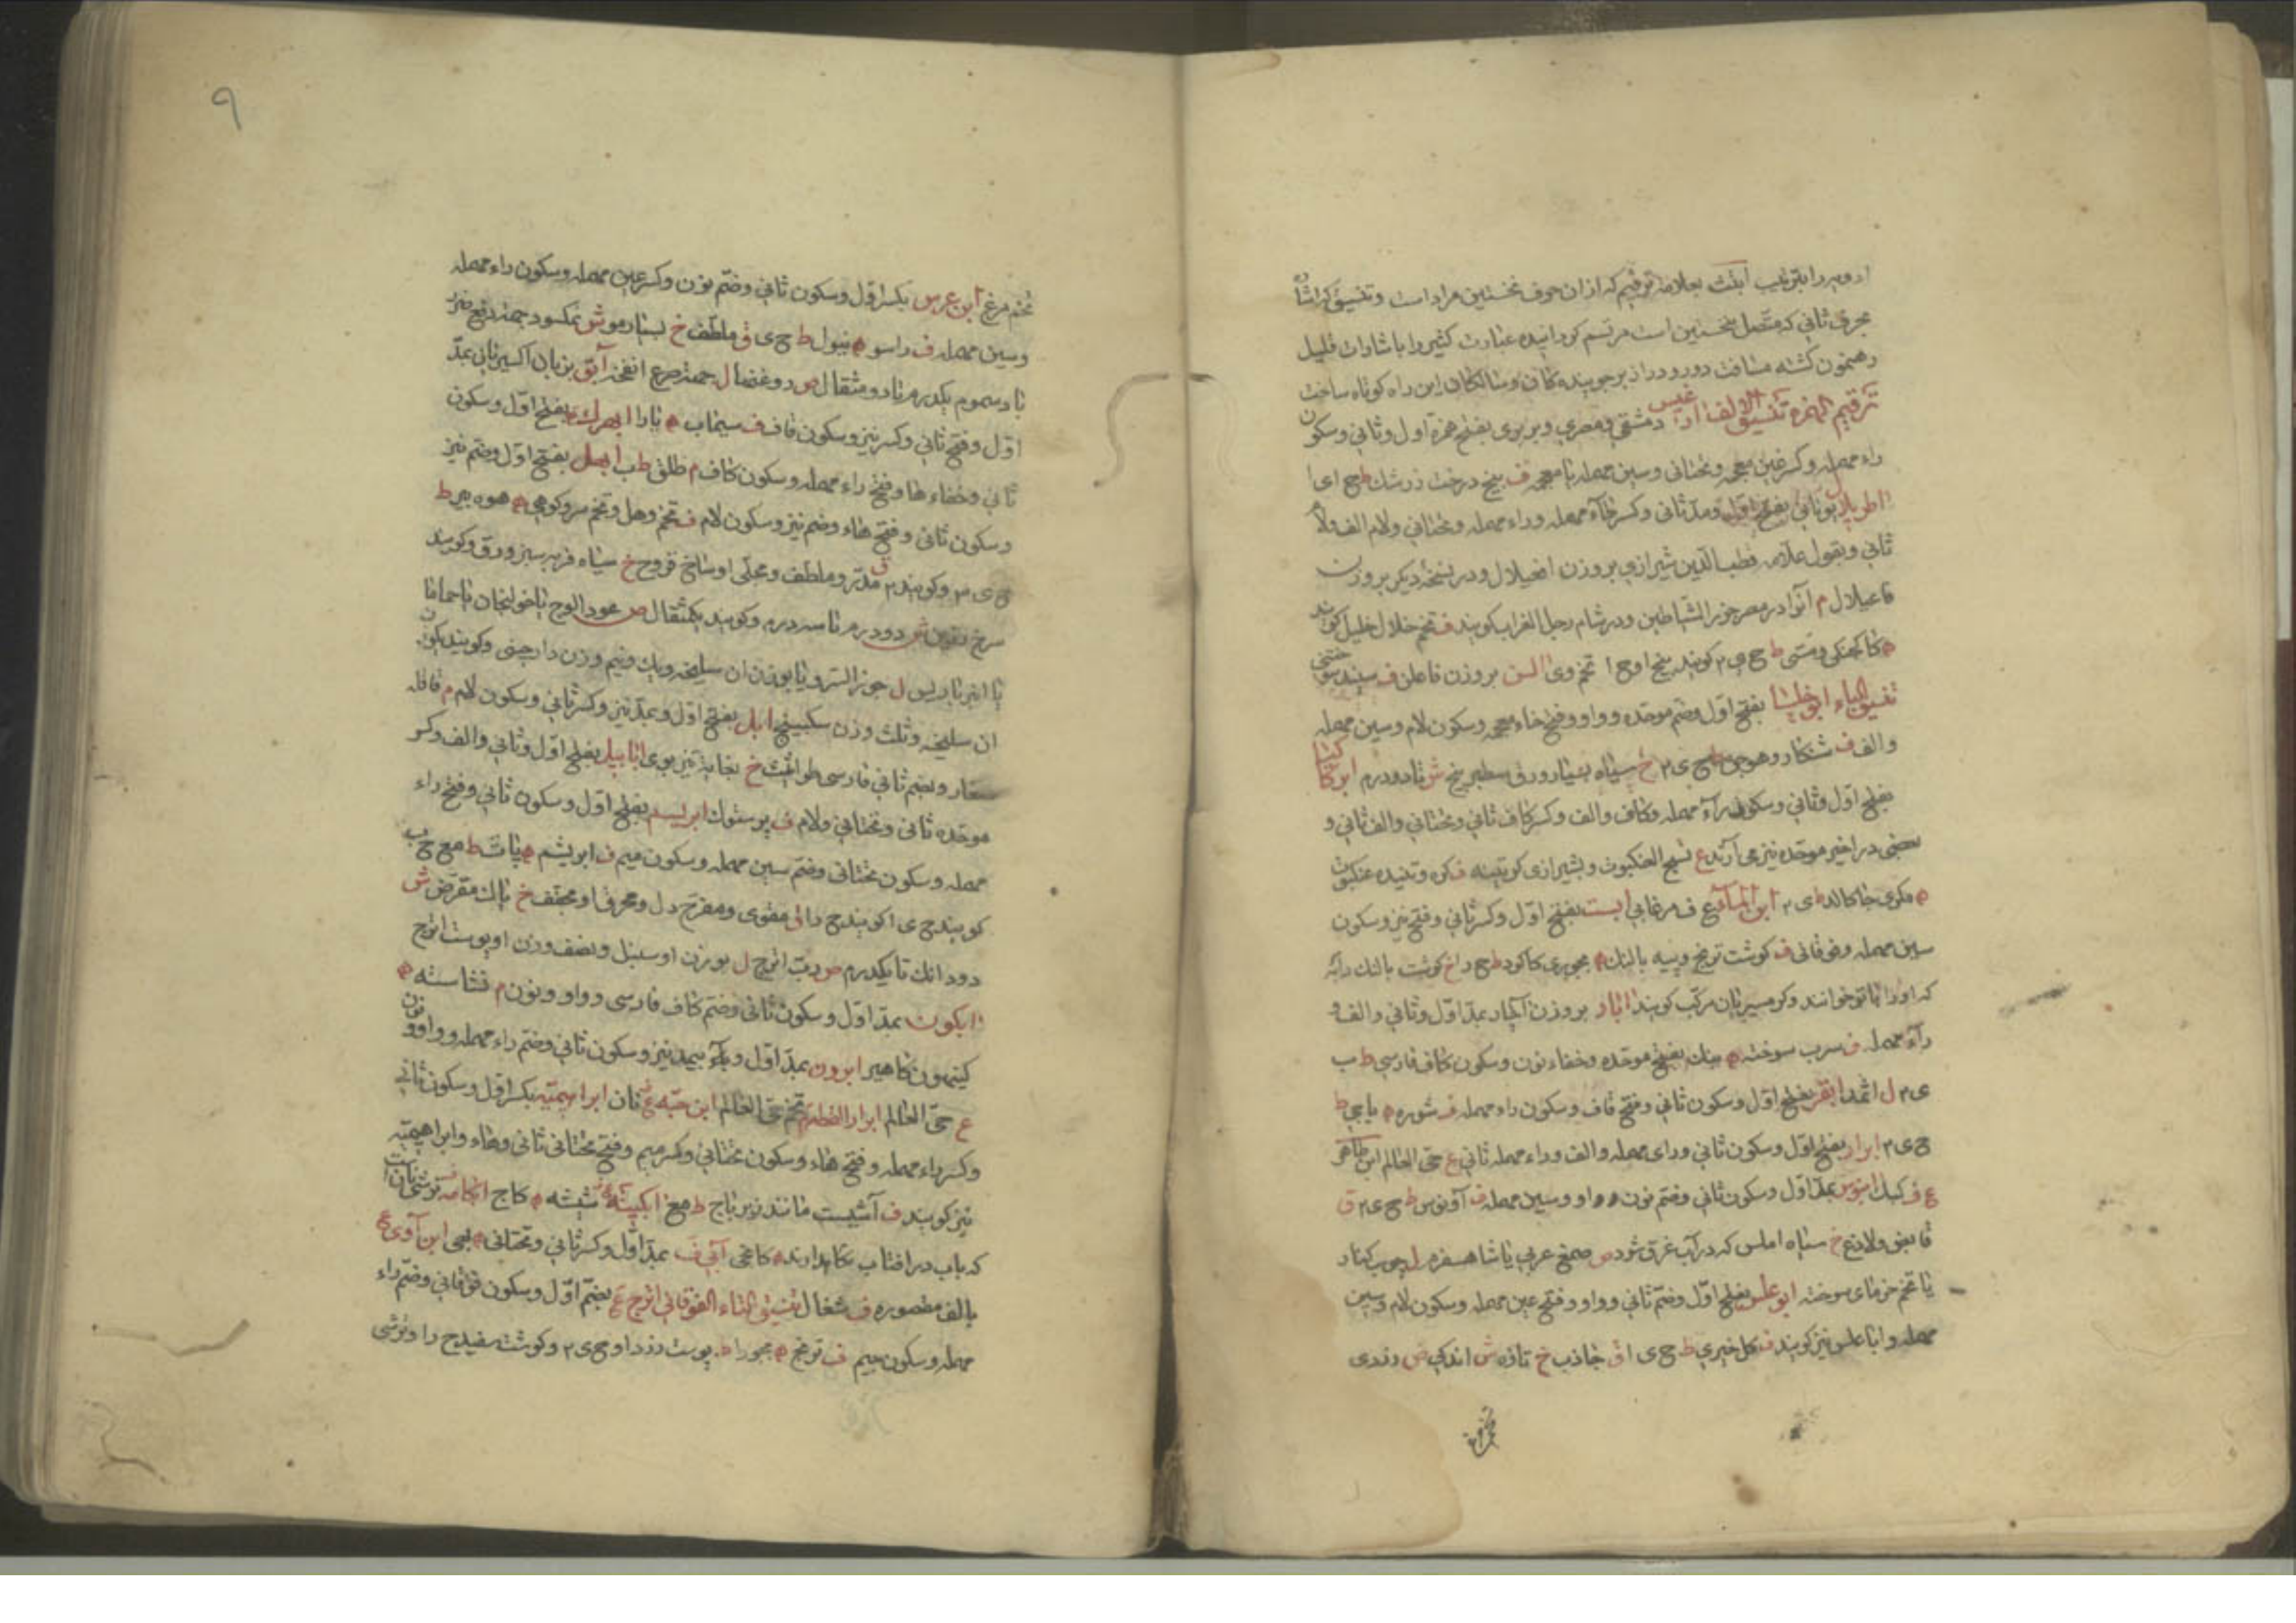 ادویه را بترتیب ابتث بعلامة ترقیم که از ان حرف نخستین مراد است و تنسیق که اشارة
بحرف ثانی که متصل نخستین است مرتسم کردانیده عبارت کثیر را باشارات قلیل
رهنمون کشته مسافت دور و دراز بر جوینده کان و سالکان این راه کوتاه ساخت
ترقیم الهمزه تنسیق الالف اارغیس دمشقی و مصری و بربری بفتح همزه اول و ثانی و سکون
راء مهمله و کسر غین معجمه و تحتانی و سین مهمله یا معجمه ف بیخ درخت زرشک ط ح ی ا
اطریلال یونانی بفتح اول و مد ثانی و کسر طاء مهمله و راء مهمله و تحتانی و لام الف و لام
ثانی و بقول علامه قطب الدین شیرازی بروزن افعیلال و در نسخه دیکر بروزن
فاعیلال م آنرا در مصر جزر الشیاطین و در شام رجل الغراب کویند ف تخم خلال خلیل کویند
ه کاکجنکی و مسی ط ح ی ۳ کویند بیخ او ح ا تخم وی االسن بروزن فاعلن ف سپند سوختنی
تنسیق الباء ابوخلسا بفتح اول و ضم موحده و واو و فتح خاء معجمه و سکون لام و سین مهمله
و الف ف شنکار و هوجوه ط ح ی ۲ خ سیاه بسیار ورق سطبر بیخ ش تا دو درم ابرکاکیا
بفتح اول و ثانی و سکون راء مهمله و کاف و الف و کسر کاف ثانی و تحتانی و الف ثانی و
بعضی در اخیر موحده نیز می آرند ع نسج العنکبوت و بشیرازی کرتینه ف کره و تنیده عنکبوت
ه مکری جا کالا ط ی ۲ ابن الماء ع ف مرغابی ابست بفتح اول و کسر ثانی و فتح نیز و سکون
سین مهمله و فوقانی ف کوشت ترنج و پیه بالنک ه بجوری کا کودا ط ح را خ کوشت بالنک را به
که او را باتو خوانند و کرمسیریان مرکب کویند اابار بروزن آبکار بمد اول و ثانی و الف و
راء مهمله ف سرب سوخته ه بنک بفتح موحده و خفاء نون و سکون کاف فارسی ط ب
ی ۳ ل اثمد ابقر بفتح اول و سکون ثانی و فتح قاف و سکون راء مهمله ف شوره ه یا بجی ط
ح ی ۳ ابرار بفتح اول و سکون ثانی و رای مهمله و الف و راء مهمله ثانی ع حی العالم ابن طاهر
ع ف کبک ابنوس بمد اول و سکون ثانی و ضم نون و واو و سین مهمله ف آونوس ط ح ی ۲ ق
قابض و لاذع خ سیاه املس که در آب غرق شود ص صمغ عربی یا شاهسفرم ل چوب کنار
یا تخم خرمای سوخته ابوعلس بفتح اول و ضم ثانی و واو و فتح عین مهمله و سکون لام و سین
مهمله و اباعلس نیز کویند ف کل خیری ط ح ی ا ق جاذب خ تازه ش اندکی ص زردی
تخم مرغ ابن عرس بکسر اول و سکون ثانی و ضم نون و کسر عین مهمله و سکون راء مهمله
و سین مهمله ف راسو ه نیول ط ح ی ق ملطف خ بسیار مو ش نمکسود جهت دفع ضرر
باد سموم یکدرم تا دو مثقال ص روغنها ل جهت صرع انفخه آبق بزبان اکسیریانی بمد
اول و فتح ثانی و کسر نیز و سکون قاف ف سیماب ه پارا ابهرک بفتح اول و سکون
ثانی و خفاء ها و فتح راء مهمله و سکون کاف م طلق ط ب ابهل بفتح اول و ضم نیز
و سکون ثانی و فتح هاء و ضم نیز و سکون لام ف تخم وهل و تخم سرو کوهی ه هوه بیر ط
ح ی ۳ و کویند ۲ ق مدر و ملطف و مجلی اوساخ قروح خ سیاه فربه سبز ورق و کویند
سرخ ش دو درم تا سه درم و کویند یکمثقال ص عود الوج یا خولنجان یا حماما
یا انبرباریس ل جوز السرو یا بوزن ان سلیخه و یک و نیم وزن دارچینی و کویند بوزن
ان سلیخه و ثلث وزن سکبینج ابل بفتح اول و بمد نیز و کسر ثانی و سکون لام م قاقله
صغار و بضم ثانی فارسی طراثیث خ بغایة تیز بوی ابابیل بفتح اول و ثانی و الف و کسر
موحده ثانی و تحتانی و لام ف پرستوک ابریسم بفتح اول و سکون ثانی و فتح راء
مهمله و سکون تحتانی و ضم سین مهمله و سکون میم ف ابریشم ه پات ط مع ح ب
کویند ح ی ا کویند ح را ق مقوی و مفرح دل و محرق او مجفف خ پاک مقرض ش
دو دانک تا یکدرم ص رب اترج ل بوزن او سنبل و نصف وزن او پوست اترج
اابکون بمد اول و سکون ثانی و ضم کاف فارسی و واو و نون م نشاسته ه
کیهون کا هیر ابرون بمد اول و بی مد نیز و سکون ثانی و ضم راء مهمله و واو و نون
ع حی العالم ابرار الفطرم تخم حی العالم ابن حبه ع نان ابراهیمیه بکسر اول و سکون ثانی
و کسر راء مهمله و فتح هاء و سکون تحتانی و کسر میم و فتح تحتانی ثانی و هاء و ابراهیمیه
نیز کویند ف آشیست مانند زیرباج ط مع ابکینه ف شیشه ه کاج ابکامه ف ترشی نان است
که باب در افتاب نکاهدارند ه کانجی آبی ف بمد اول و کسر ثانی و تحتانی ه بهی ابن آوی ع
بالف مقصوره ف شغال تنسیق التاء الفوقانی اترج ع بضم اول و سکون فوقانی و ضم راء
مهمله و سکون جیم ف ترنج ه بجورا ط پوست زرد او ح ی ۲ و کوشت سفید ح را و ترشی